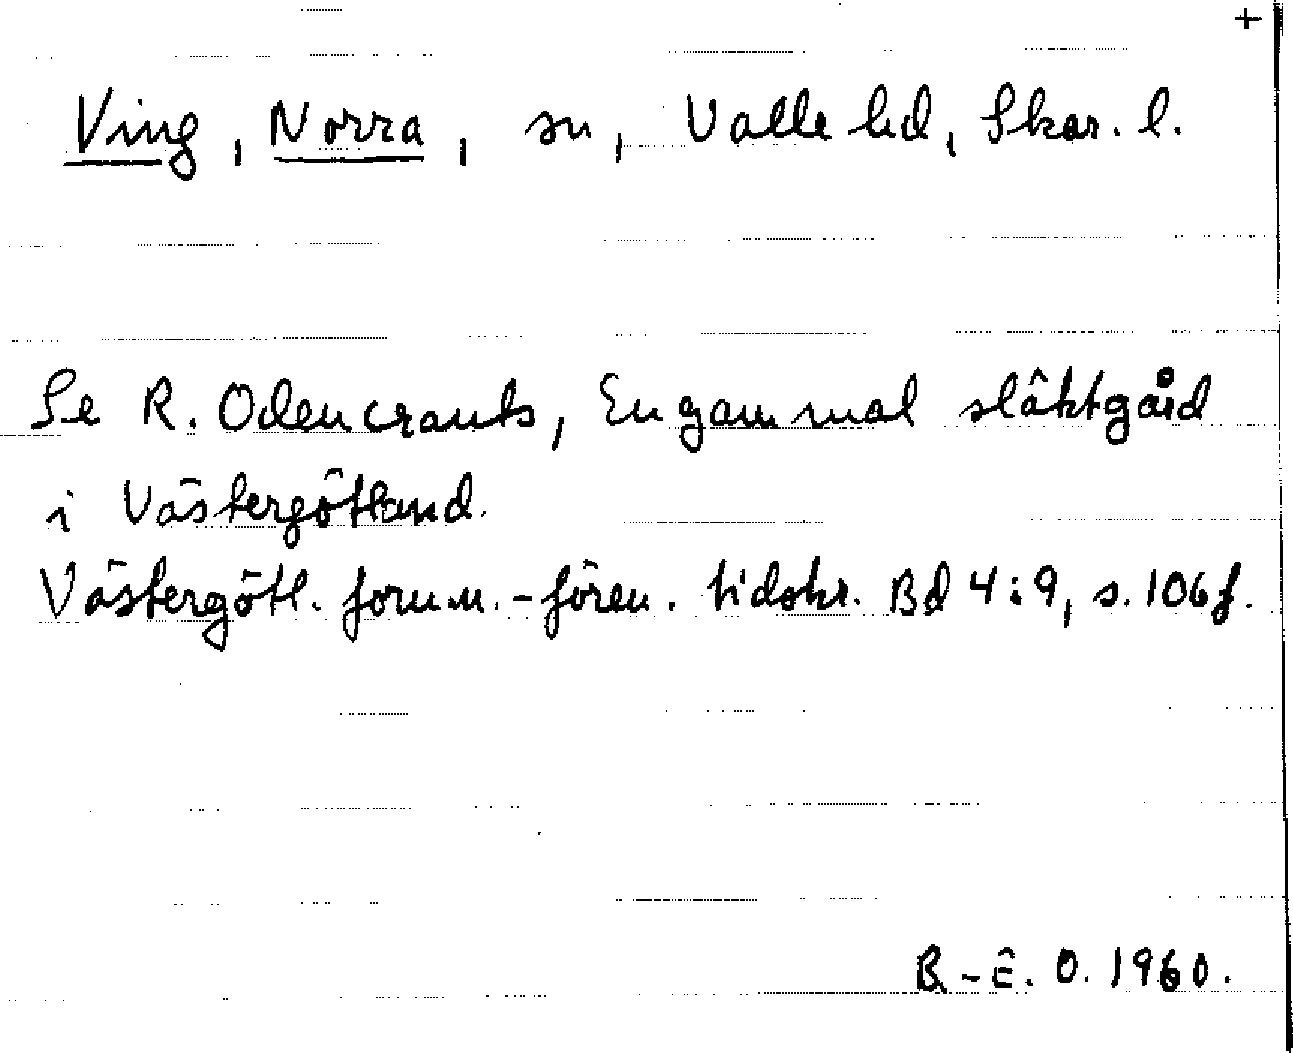 +
Ving, Norra, sn, Valle hd, Skar. l.
Se R. Odencrants, En gammal släktgård
i Västergötland.
Västergötl. fornm.-fören. tidskr. Bd 4:9, s. 106 f.
B.-E. O. 1960.